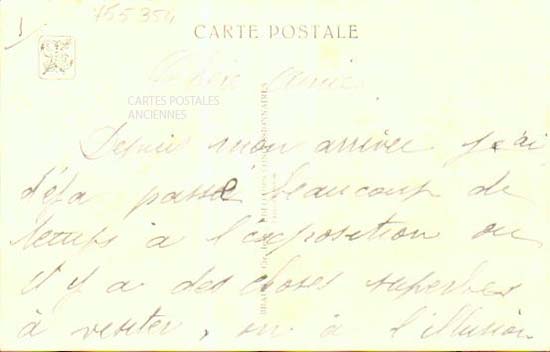 755354
CARTE POSTALE
Chère Amie
CARTES POSTALES
ANCIENNES
Depuis mon arrivée j'ai
déja passé beaucoup de
temps à l'exposition ou
il y a des choses superbes
à visiter, on a l'illusion